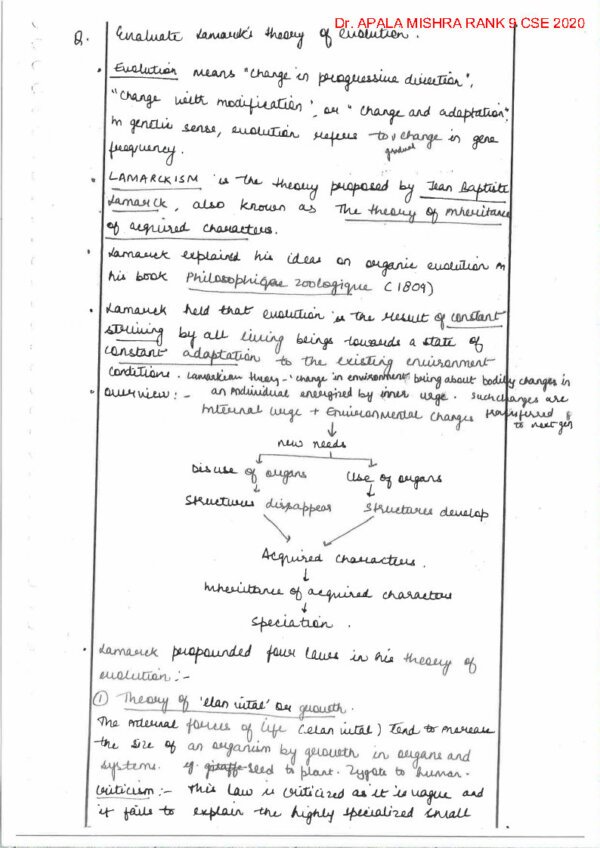 Dr. APALA MISHRA RANK 9 CSE 2020
Q. Evaluate Lamarck's theory of evolution.
• Evolution means "change in progressive direction",
"change with modification", or "change and adaptation".
In genetic sense, evolution refers to gradual change in gene
frequency.
• LAMARCKISM is the theory proposed by Jean Baptiste
Lamarck, also known as The theory of inheritance
of acquired characters.
• Lamarck explained his ideas on organic evolution in
his book Philosophique Zoologique (1809)
• Lamarck held that evolution is the result of constant
striving by all living beings towards a state of
constant adaptation to the existing environment
conditions. Lamarckian theory - 'change in environment bring about bodily changes in
an individual energised by inner urge. Such changes are
transferred to next gen
• Overview :-
Internal urge + Environmental changes
new needs
Disuse of organs Use of organs
Structures disappear Structures develop
Acquired characters.
Inheritance of acquired characters
Speciation.
• Lamarck propounded four laws in his theory of
evolution :-
① Theory of 'elan vital' or growth.
The internal forces of life (elan vital) tend to increase
the size of an organism by growth in organs and
systems. eg. giraffe seed to plant. Zygote to human.
Criticism :- This law is criticized as it is vague and
it fails to explain the highly specialized small